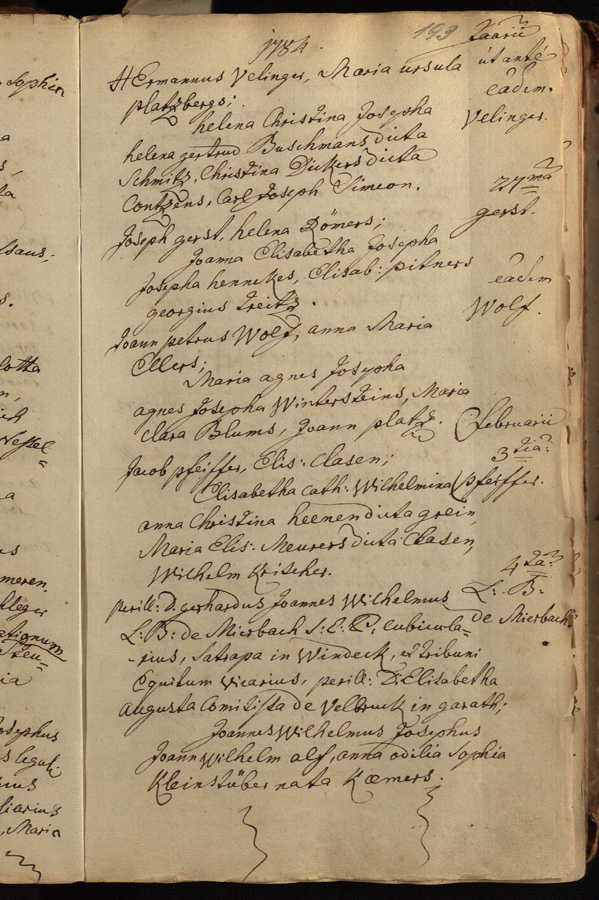 Sophia
1784.
193
Jaarii
HErmannus Velinger, Maria ursula
ut ante
platzbergs;
eadem.
helena Christina Josepha
Velinger.
helena gertrud Buschmans dicta
Schmitz, Christina Dickers dicta
Contzens, Carl Joseph Simeon.
27ma
Joseph gerst, helena Römers;
gerst.
Joanna Elisabetha Josepha
Josepha hennekes, Elisab: pitners
eadem
georgius Treitz.
Wolf.
Joann petrus Wolf, anna Maria
Ellers;
Maria agnes Josepha
agnes Josepha Wintersteins, Maria
Clara Blums, Joann platz.
februarii
Jacob pfeiffer, Elis: Clasen;
3tia:
Elisabetha Cath: Wilhelmina
pfeiffer.
anna Christina heenen dicta grein,
Maria Elis: Meurers dicta Clasen,
Wilhelm Kritscher.
4ta:
perill: D: gerhardus Joannes Wilhelmus
L: B:
L: B: de Mierbach S: E: P: cubicula=
de Mierbach
=rius, Satrapa in Windeck, et tribuni
Equitum Vicarius, perill: D: Elisabetha
augusta Comitissa de Velbruck in garath;
Joannes Wilhelmus Josephus
Joann Wilhelm alf, anna odilia Sophia
Kleinstüber nata Kœmers.